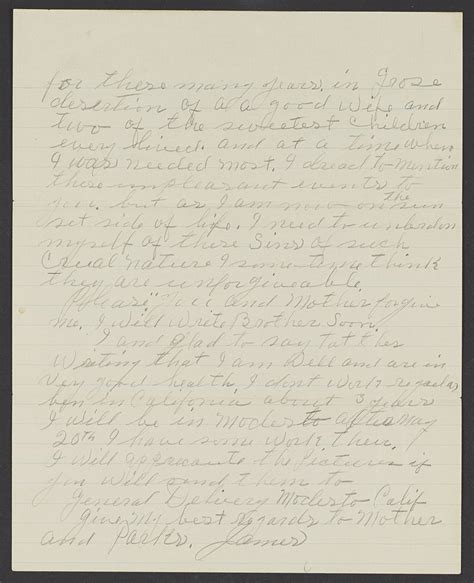 for these many years, in Grose
desertion of a a good Wife and
two of the sweetest Children
every lived. and at a time when
I was needed most. I dread to mention
these unpleasant events to
you. but as I am now on the sun
set side of life. I need to unburdon
myself of these Sins of such
Crual nature I some time think
they are unforgiveable.
Please, You and Mother forgive
me. I Will Write Brother Soon.
I and glad to say tat this
Writing that I am Well and are in
Very good health, I dont Work regular
ben in California about 3 years
I Will be in Modesto after May
20th I have some work their.
I Will appreacate the Pictures if
you Will send them to
General Delivery Modesto Calif
Give My best regards to Mother
and James